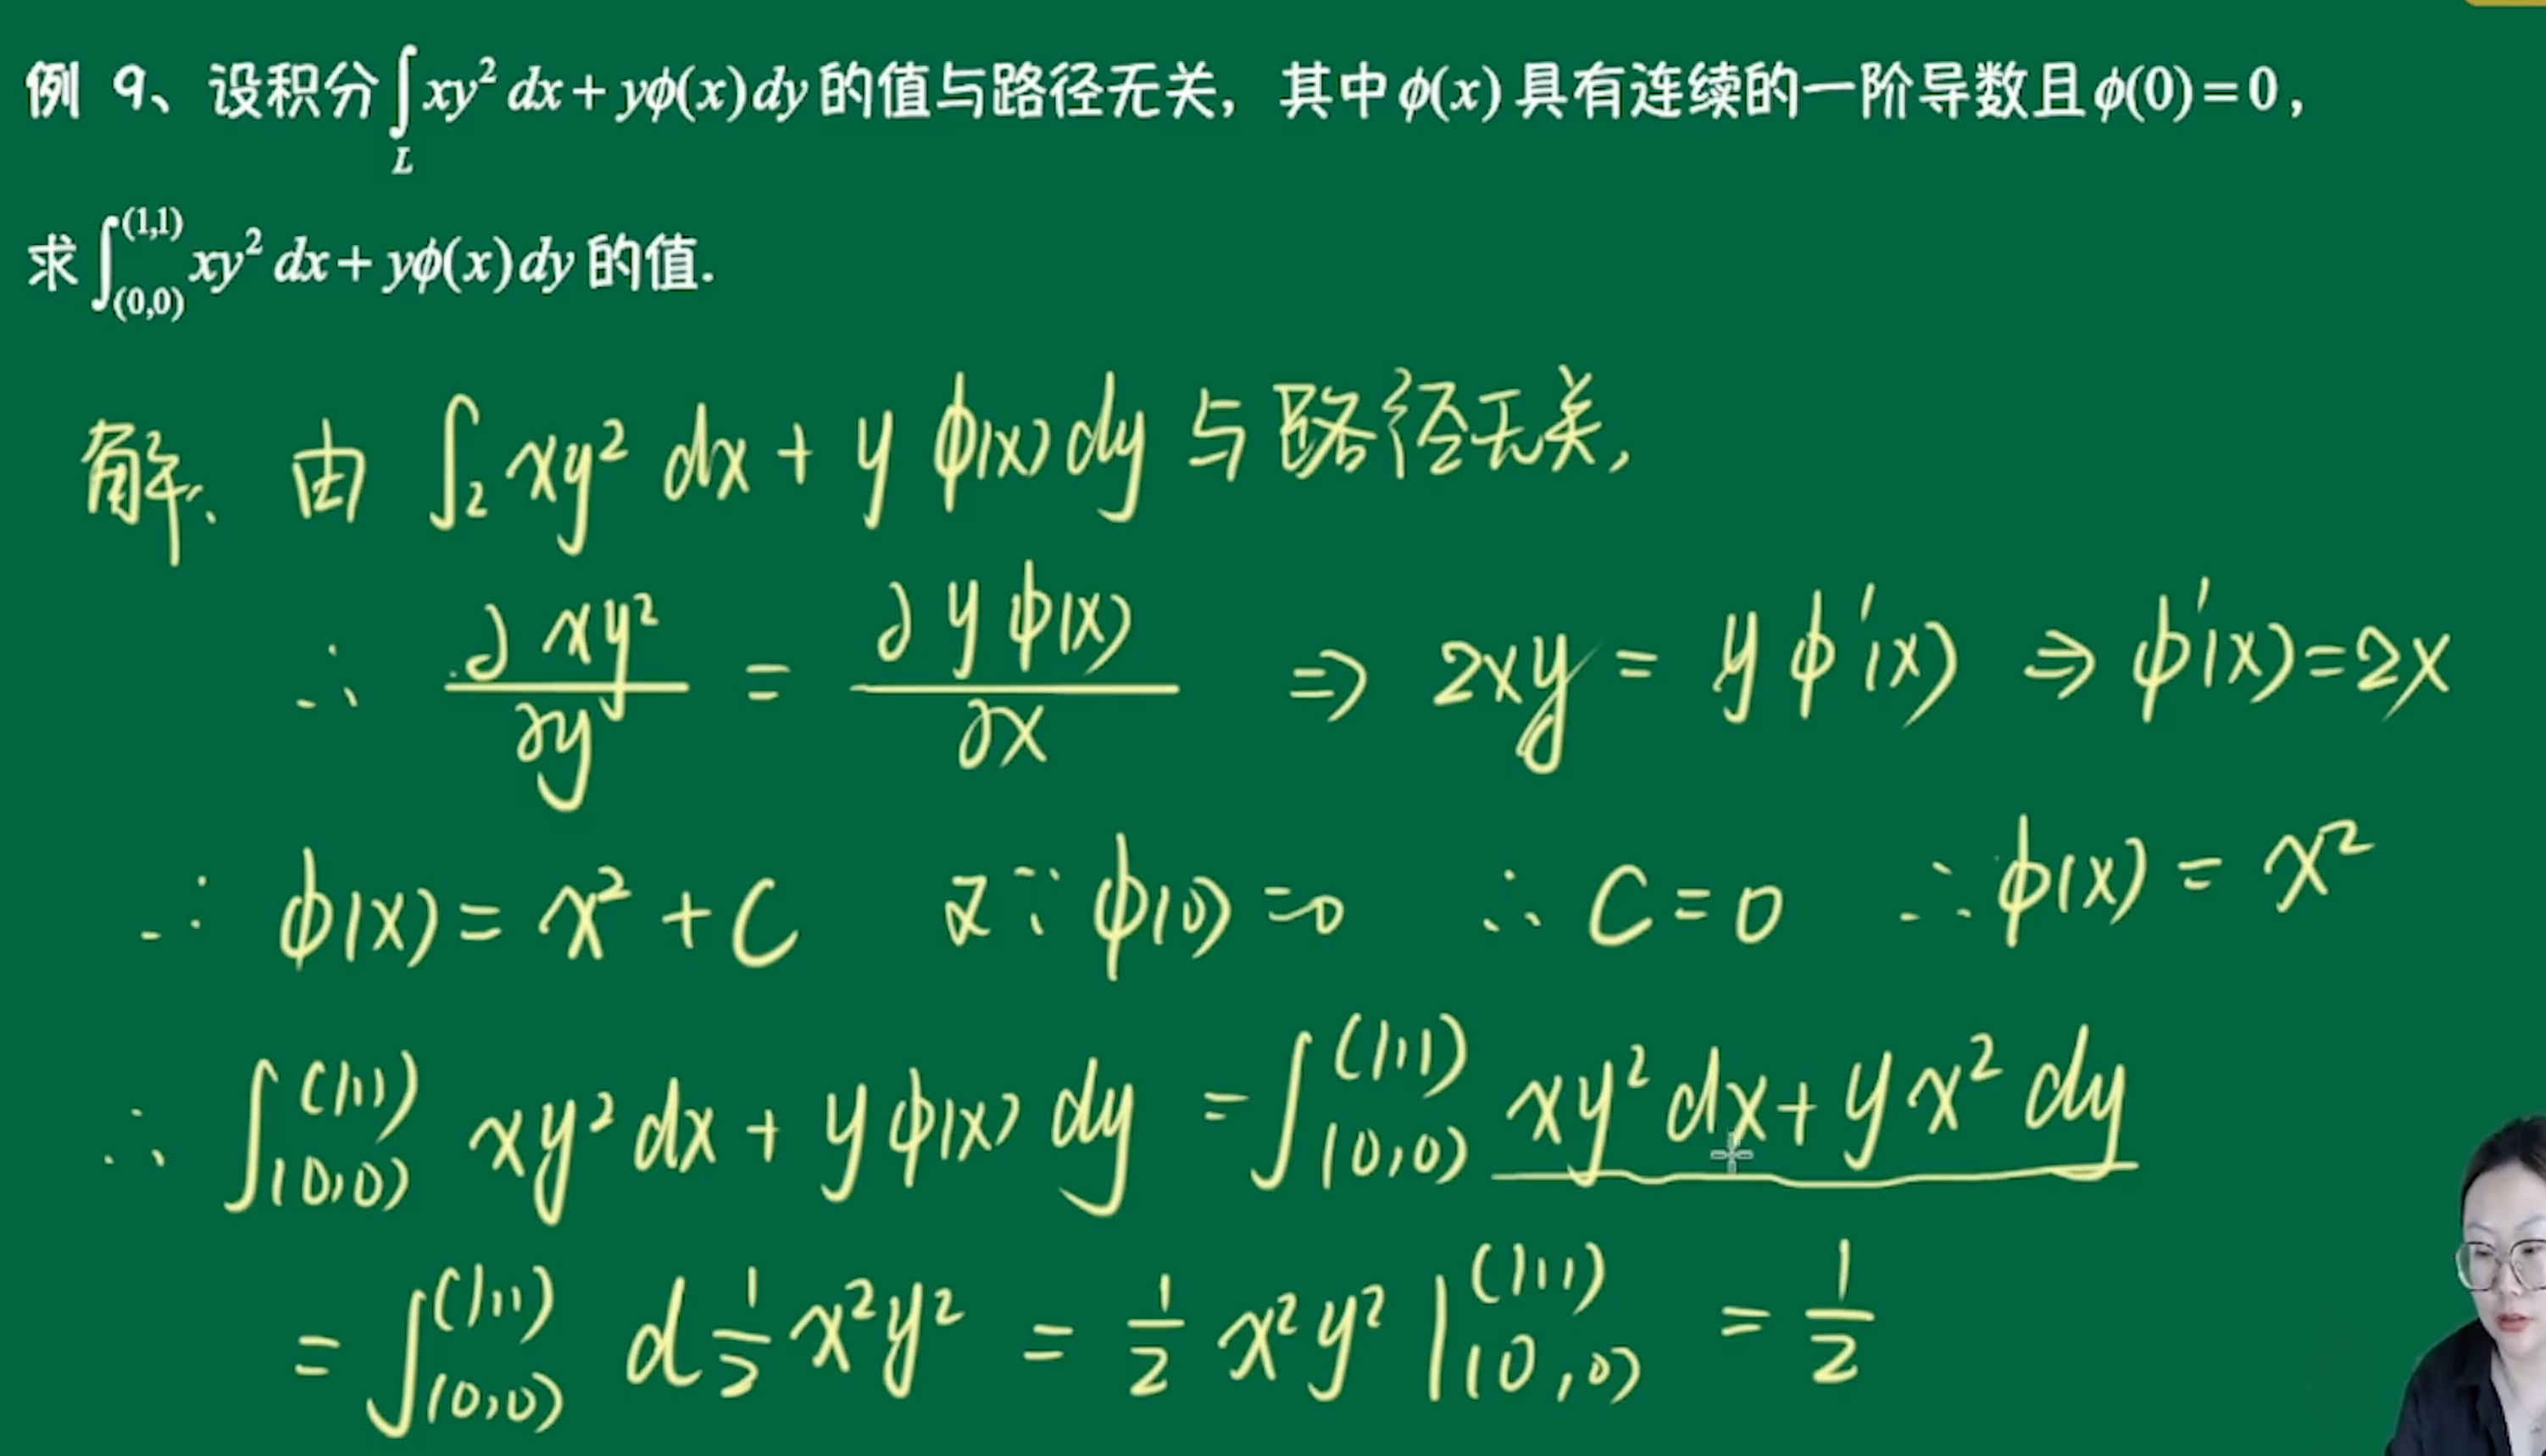 例 9、设积分∫_L xy² dx + yϕ(x)dy 的值与路径无关，其中ϕ(x)具有连续的一阶导数且ϕ(0)=0，
求∫_(0,0)^(1,1) xy² dx + yϕ(x)dy 的值.
解、由 ∫_L xy² dx + y ϕ(x) dy 与路径无关，
∴ ∂xy²/∂y = ∂yϕ(x)/∂x ⇒ 2xy = yϕ'(x) ⇒ ϕ'(x)=2x
∴ ϕ(x) = x² + C 又∵ ϕ(0)=0 ∴ C=0 ∴ ϕ(x) = x²
∴ ∫_(0,0)^(1,1) xy² dx + yϕ(x) dy = ∫_(0,0)^(1,1) xy² dx + yx² dy
= ∫_(0,0)^(1,1) d ½ x²y² = ½ x²y² |_(0,0)^(1,1) = ½